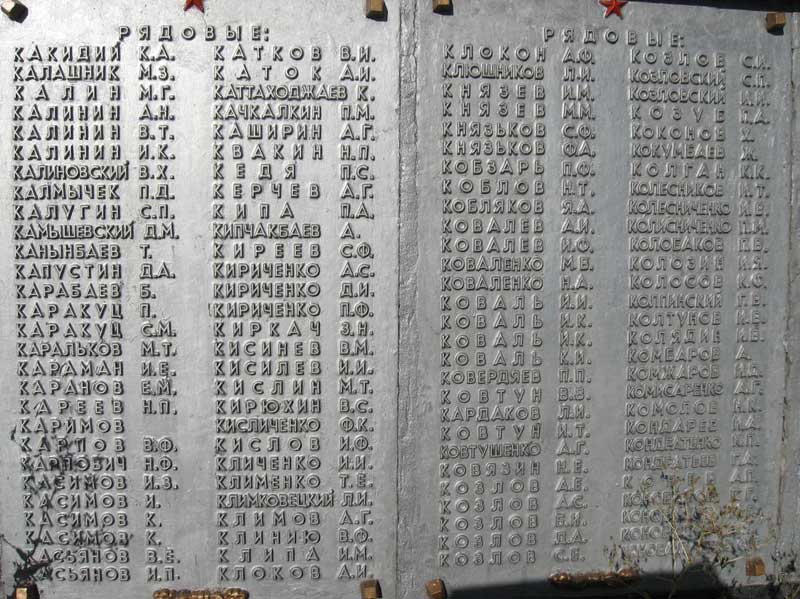 РЯДОВЫЕ:
КАКИДИЙ К.А.
КАЛАШНИК М.З.
КАЛИН М.Г.
КАЛИНИН А.Н.
КАЛИНИН В.Т.
КАЛИНИН И.К.
КАЛИНОВСКИЙ В.Х.
КАЛМЫЧЕК П.Д.
КАЛУГИН С.П.
КАМЫШЕВСКИЙ Д.М.
КАНЫНБАЕВ Т.
КАПУСТИН Д.А.
КАРАБАЕВ Б.
КАРАКУЦ П.
КАРАКУЦ С.М.
КАРАЛЬКОВ М.Т.
КАРАМАН И.Е.
КАРАНОВ Е.М.
КАРЕЕВ Н.П.
КАРИМОВ
КАРПОВ В.Ф.
КАРПОВИЧ Н.Ф.
КАСИМОВ И.З.
КАСИМОВ И.
КАСИМОВ К.
КАСИМОВ К.
КАСЬЯНОВ В.Е.
КАСЬЯНОВ И.П.
КАТКОВ В.И.
КАТОК А.И.
КАТТАХОДЖАЕВ К.
КАЧКАЛКИН П.М.
КАШИРИН А.Г.
КВАКИН Н.П.
КЕДЯ П.С.
КЕРЧЕВ А.Г.
КИПА П.А.
КИПЧАКБАЕВ А.
КИРЕЕВ С.Ф.
КИРИЧЕНКО А.С.
КИРИЧЕНКО Д.И.
КИРИЧЕНКО П.Ф.
КИРКАЧ З.Н.
КИСИНЕВ В.М.
КИСИЛЕВ И.И.
КИСЛИН М.Т.
КИРЮХИН В.С.
КИСЛИЧЕНКО Ф.К.
КИСЛОВ И.Ф.
КЛИЧЕНКО И.И.
КЛИМЕНКО Т.Е.
КЛИМКОВЕЦКИЙ Л.И.
КЛИМОВ А.Г.
КЛИНИЮ В.Ф.
КЛИПА И.М.
КЛОКОВ А.И.
РЯДОВЫЕ:
КЛОКОН А.Ф.
КЛЮШНИКОВ Л.И.
КНЯЗЕВ И.М.
КНЯЗЕВ М.М.
КНЯЗЬКОВ С.Ф.
КНЯЗЬКОВ Ф.А.
КОБЗАРЬ П.Ф.
КОБЛОВ Н.Т.
КОБЛЯКОВ Я.А.
КОВАЛЕВ А.И.
КОВАЛЕВ И.Ф.
КОВАЛЕНКО М.В.
КОВАЛЕНКО Н.А.
КОВАЛЬ И.И.
КОВАЛЬ И.К.
КОВАЛЬ И.К.
КОВАЛЬ К.И.
КОВЕРДЯЕВ П.П.
КОВТУН В.В.
КАРДАКОВ Л.И.
КОВТУН И.Т.
КОВТУШЕНКО А.Г.
КОВЯЗИН Н.Е.
КОЗЛОВ А.Е.
КОЗЛОВ А.С.
КОЗЛОВ В.И.
КОЗЛОВ Д.А.
КОЗЛОВ С.Е.
КОЗЛОВ С.И.
КОЗЛОВСКИЙ С.П.
КОЗЛОВСКИЙ И.И.
КОЗУБ П.А.
КОКОНОВ Х.
КОКУМБАЕВ Ж.
КОЛГАН К.К.
КОЛЕСНИКОВ И.Т.
КОЛЕСНИЧЕНКО И.В.
КОЛИСНИЧЕНКО П.И.
КОЛОБАКОВ П.В.
КОЛОЗИН И.Я.
КОЛОСОВ К.С.
КОЛПИНСКИЙ Г.В.
КОЛТУНОВ И.Е.
КОЛЯДИН И.Е.
КОМБАРОВ А.
КОМЖАРОВ И.Д.
КОМИСАРЕНКО А.Г.
КОМОЛОВ Н.К.
КОНДАРЕВ И.А.
КОНДРАТЕНКО И.П.
КОНДРАТЬЕВ Г.А.
А.П.